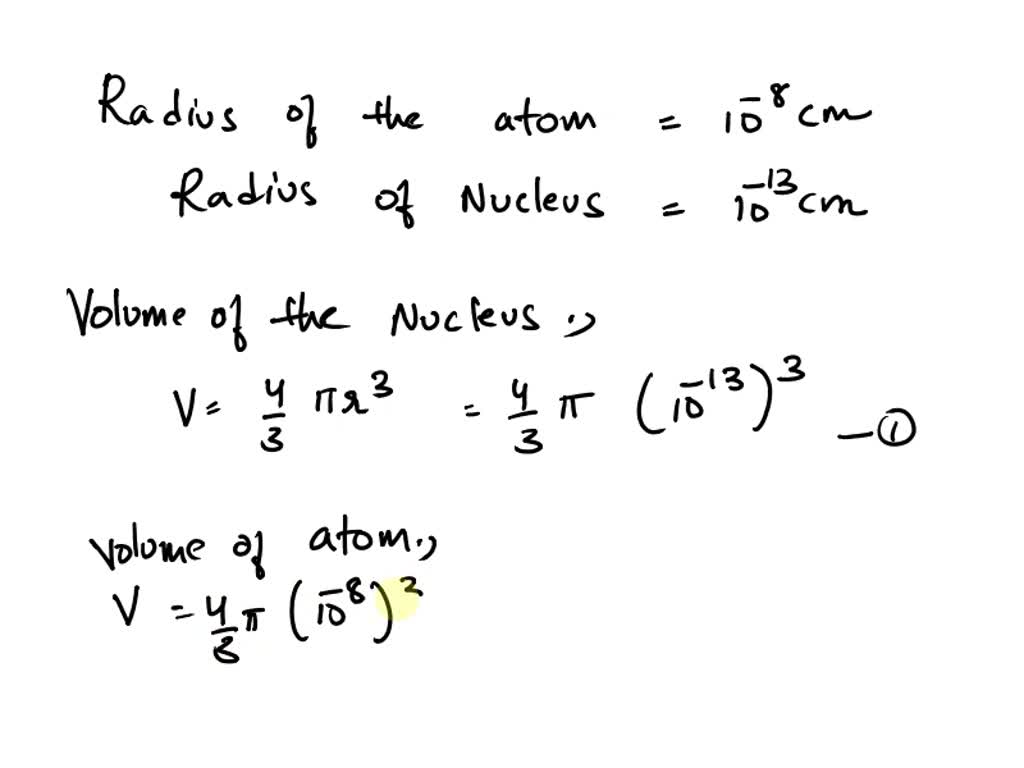 Radius of the atom = 10⁻⁸ cm
Radius of Nucleus = 10⁻¹³ cm
Volume of the Nucleus .,
V = 4/3 πr³ = 4/3 π (10⁻¹³)³ —①
Volume of atom.,
V = 4/3 π (10⁻⁸)²